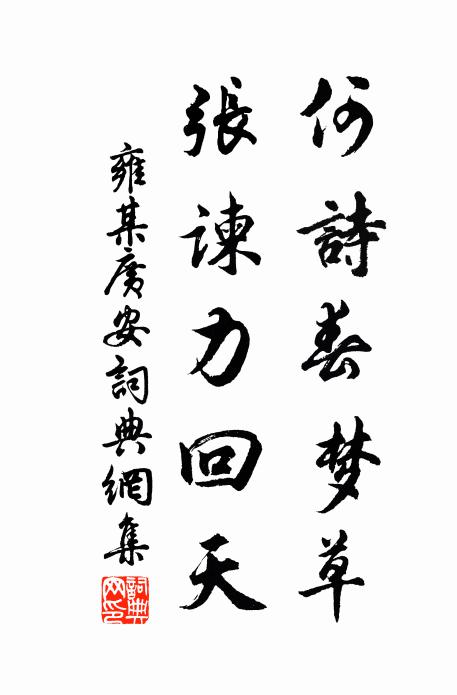 何詩春梦草
張諫力回天
雍某廣安詞典網集
詞典網印